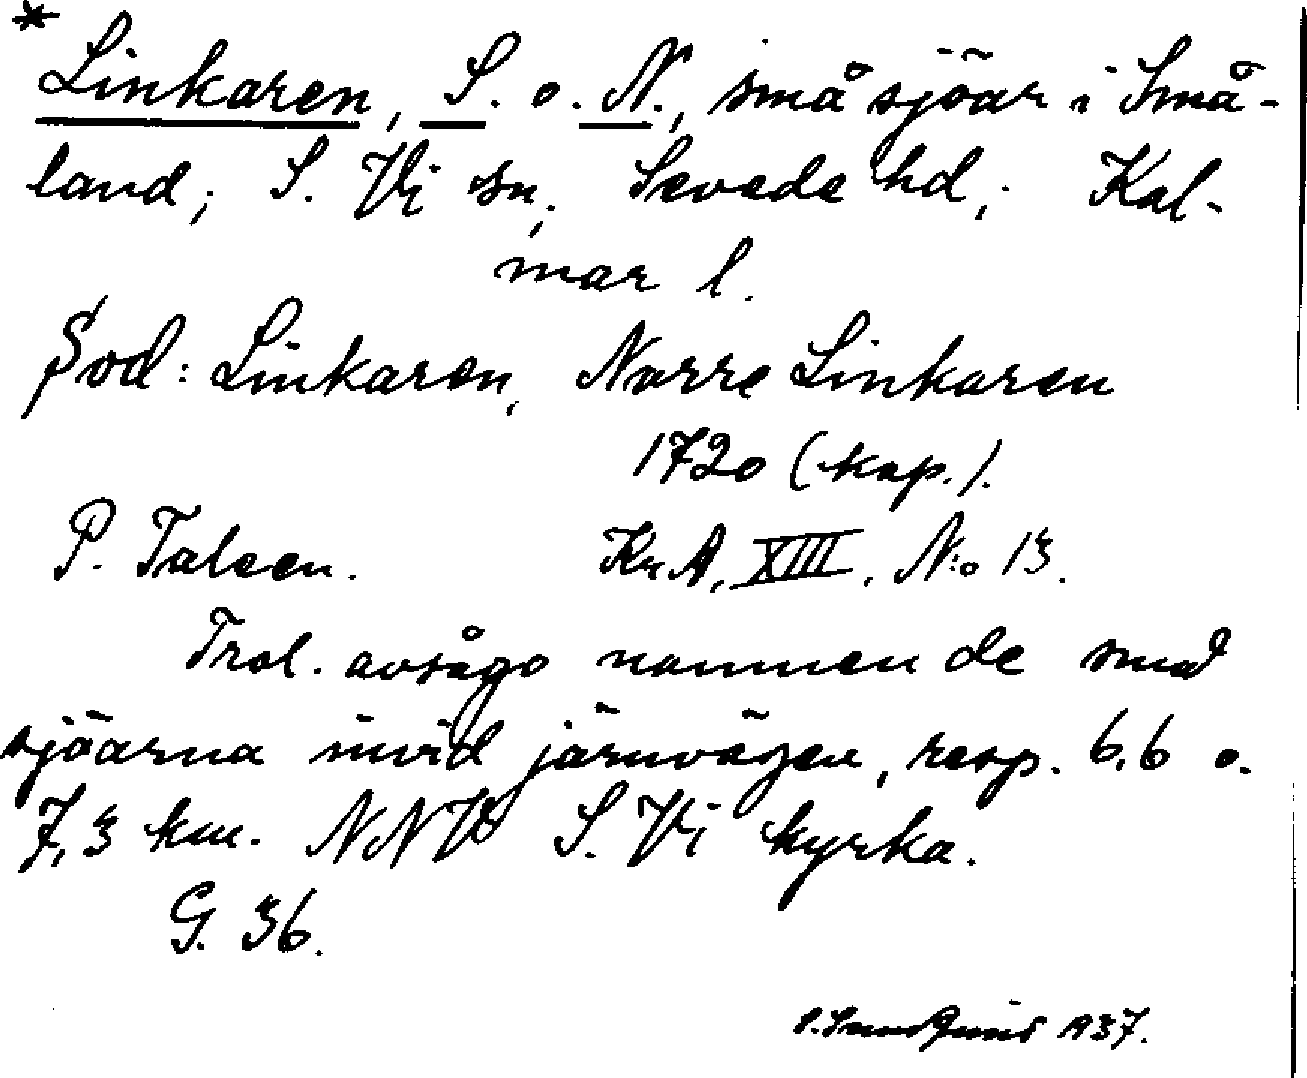 * Linkaren, S. o. N., små sjöar i Små-
land; S. Vi sn, Sevede hd, Kal-
mar l.
Linkaren, Norre Linkaren
1720 (kop.).
P. Kr. A. XIII. N:o 13.
Trol. avsågo namnen de små
sjöarna invid järnvägen, resp. 6,6 o.
7,3 km. NNV S. Vi kyrka.
G. 36.
1937.